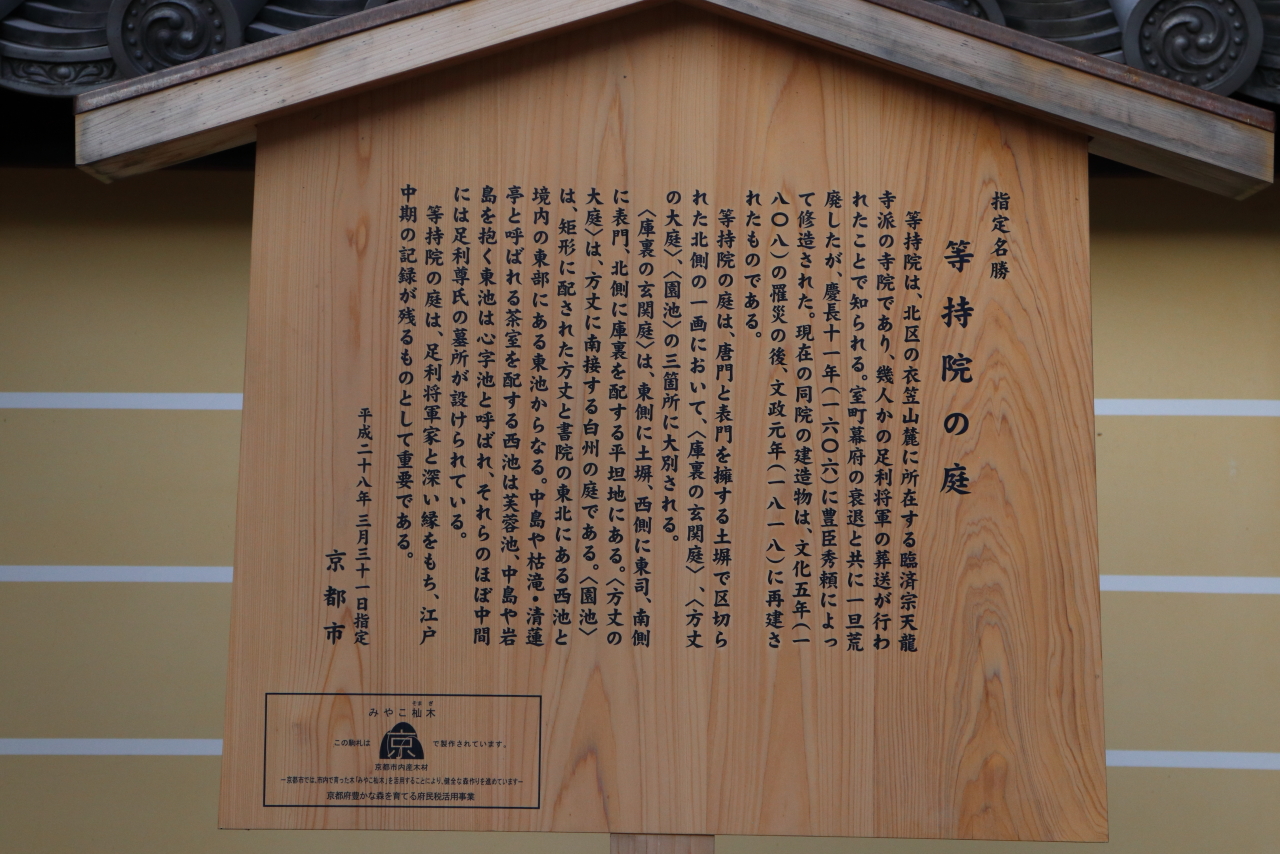 指定名勝
等持院の庭
等持院は、北区の衣笠山麓に所在する臨済宗天龍
寺派の寺院であり、幾人かの足利将軍の葬送が行わ
れたことで知られる。室町幕府の衰退と共に一旦荒
廃したが、慶長十一年(一六〇六)に豊臣秀頼によっ
て修造された。現在の同院の建造物は、文化五年(一
八〇八)の罹災の後、文政元年(一八一八)に再建さ
れたものである。
等持院の庭は、唐門と表門を擁する土塀で区切ら
れた北側の一画において、〈庫裏の玄関庭〉、〈方丈
の大庭〉、〈園池〉の三箇所に大別される。
〈庫裏の玄関庭〉は、東側に土塀、西側に東司、南側
に表門、北側に庫裏を配する平坦地にある。〈方丈の
大庭〉は、方丈に南接する白州の庭である。〈園池〉
は、矩形に配された方丈と書院の東北にある西池と
境内の東部にある東池からなる。中島や枯滝・清蓮
亭と呼ばれる茶室を配する西池は芙蓉池、中島や岩
島を抱く東池は心字池と呼ばれ、それらのほぼ中間
には足利尊氏の墓所が設けられている。
等持院の庭は、足利将軍家と深い縁をもち、江戸
中期の記録が残るものとして重要である。
平成二十八年 三月三十一日指定
京都市
そま ぎ
みやこ杣木
この駒札は 京 で製作されています。
京都市内産木材
−京都市では、市内で育った木「みやこ杣木」を活用することにより、健全な森作りを進めています−
京都府豊かな森を育てる府民税活用事業